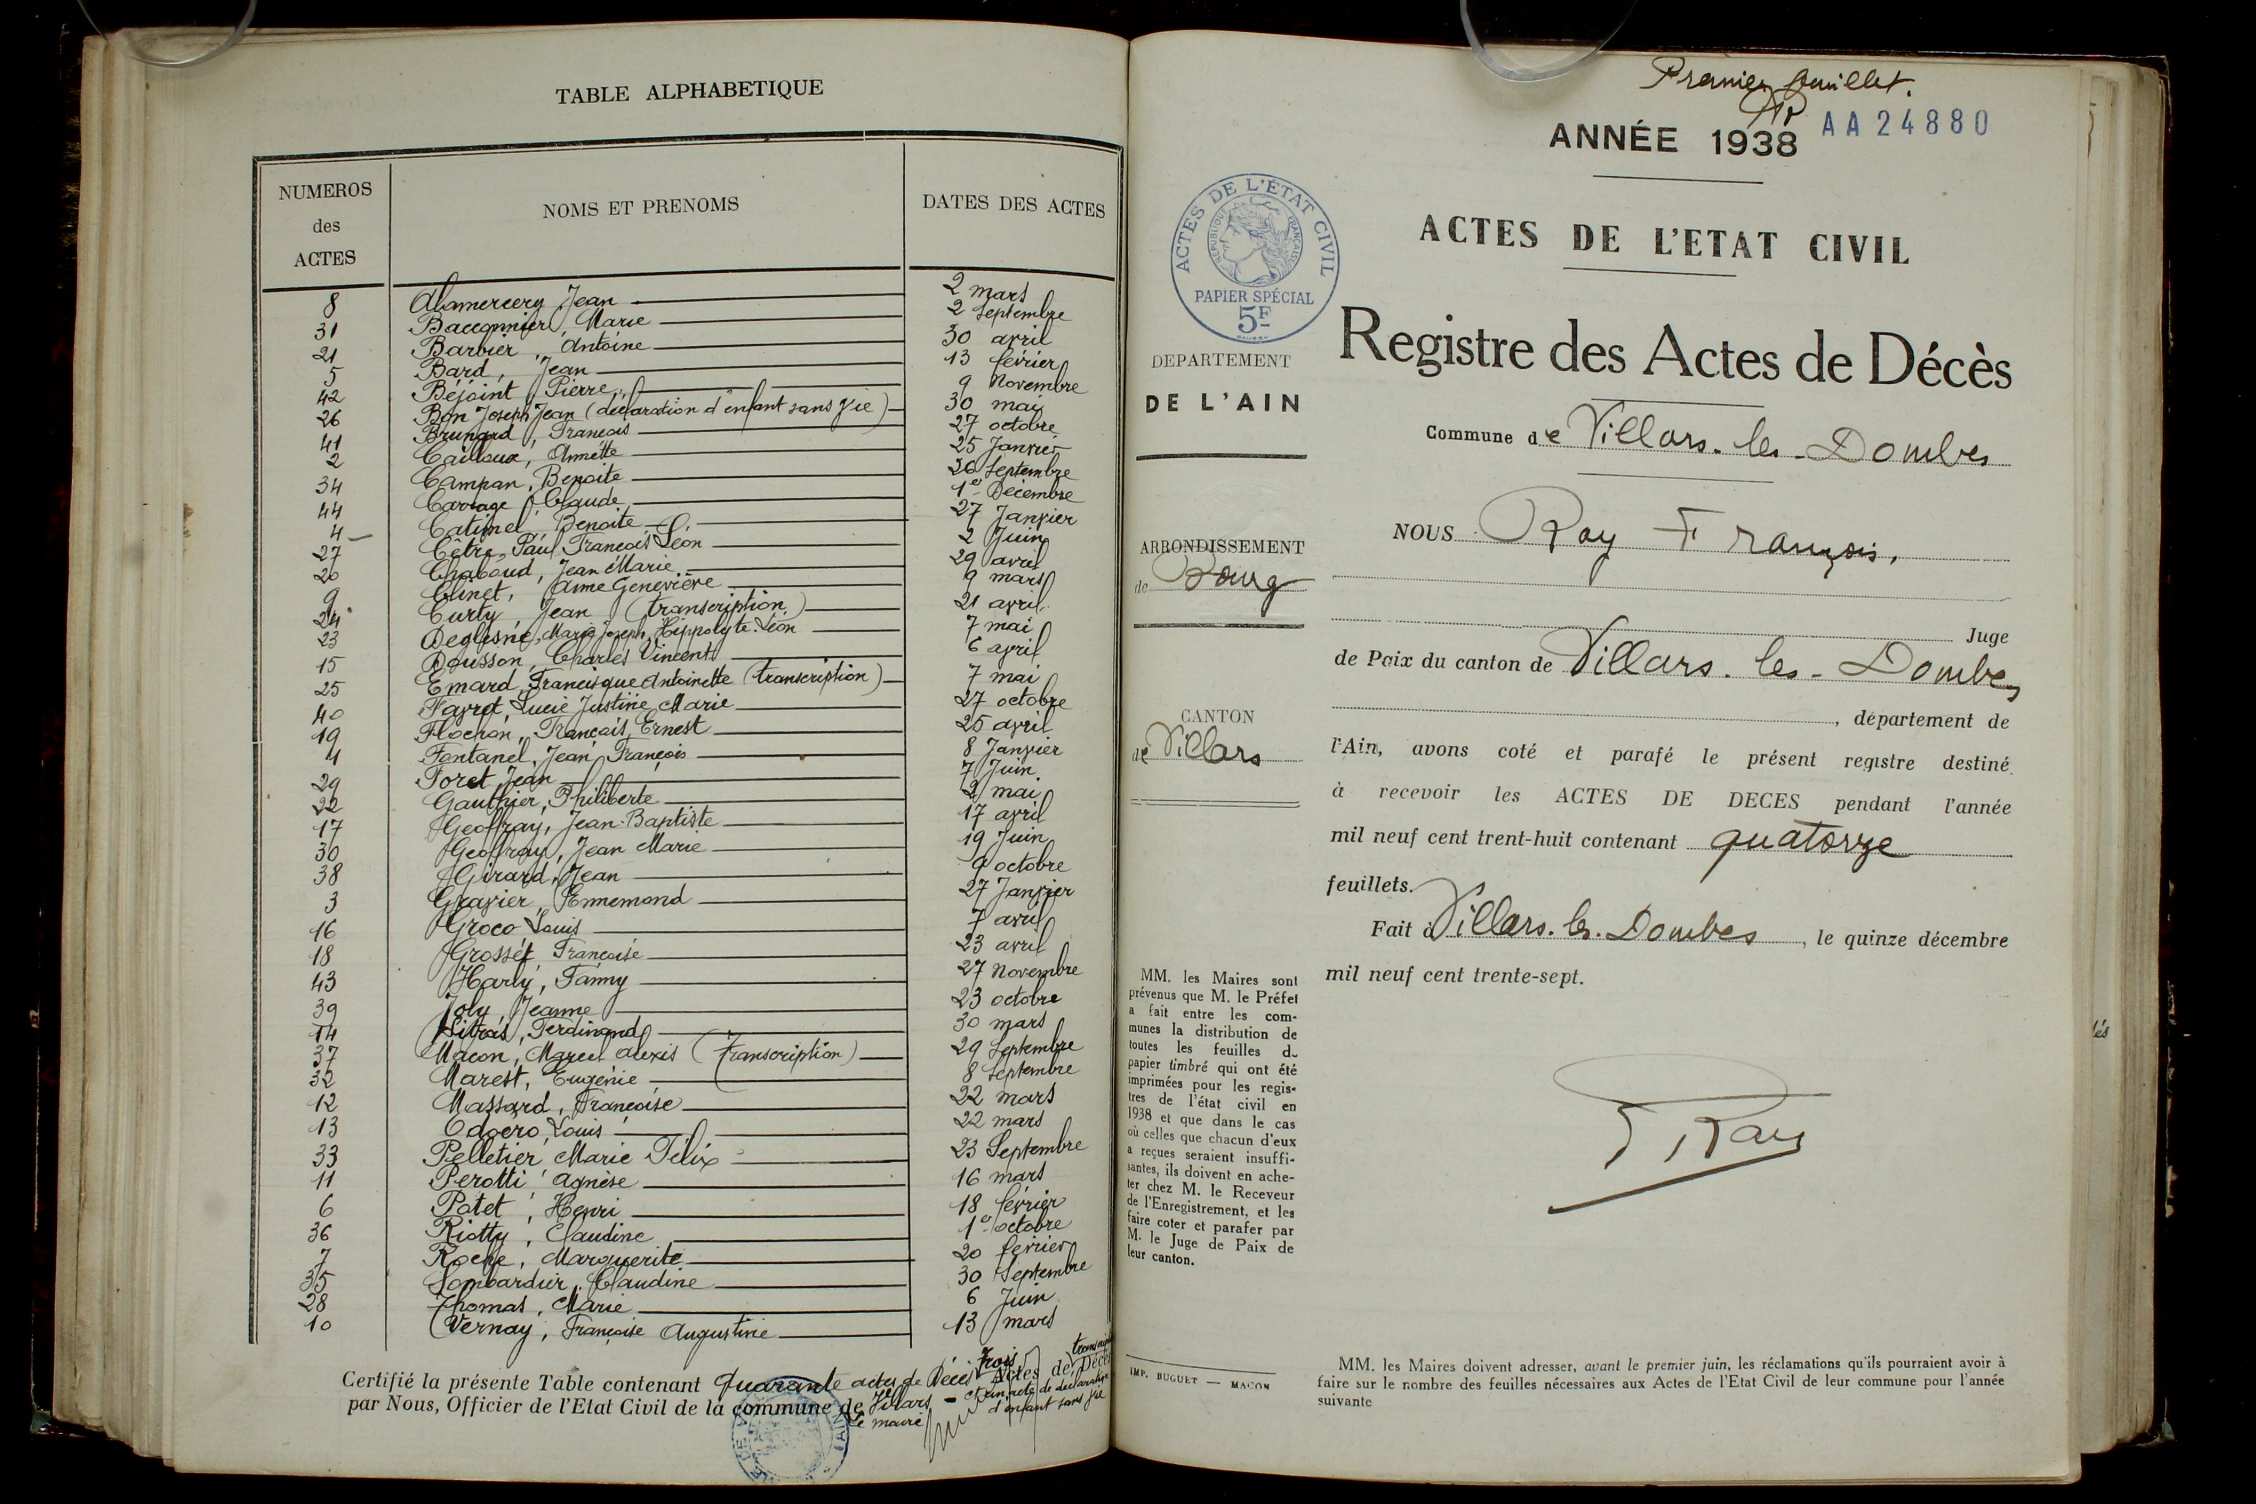 TABLE ALPHABETIQUE
NUMEROS des ACTES
NOMS ET PRENOMS
DATES DES ACTES
8 Alamercery Jean 2 mars
31 Bacconnier, Marie 2 Septembre
21 Barbier, Antoine 30 avril
5 Bard, Jean 13 février
42 Béjoint Pierre 9 Novembre
26 Bon Joseph Jean (déclaration d'enfant sans vie) 30 mai
41 Brungard, François 27 octobre
2 Cailloux, Annette 25 Janvier
34 Campan, Benoite 26 Septembre
44 Carrage, Claude 1er Décembre
4 Catimel, Benoite 27 Janvier
27 Cêtre, Paul François Léon 2 Juin
20 Chaboud, Jean Marie 29 avril
9 Clinet, Aimé Geneviève 9 mars
24 Curty Jean (transcription) 21 avril
23 Deglesne, Marie Joseph Hippolyte Léon 7 mai
15 Dousson, Charles Vincent 6 avril
25 Emard, Francisque Antoinette (transcription) 7 mai
40 Favrot, Lucie Justine Marie 27 octobre
19 Flochon, François Ernest 25 avril
4 Fontanel, Jean François 8 Janvier
29 Foret, Jean 7 Juin
22 Gauthier, Philiberte 2 mai
17 Geoffray, Jean-Baptiste 17 avril
30 Geoffray, Jean Marie 19 Juin
38 Girard, Jean 9 octobre
3 Gravier, Ennemond 27 Janvier
16 Groco Louis 7 avril
18 Grosset Françoise 23 avril
43 Harly, Fanny 27 Novembre
39 Joly, Jeanne 23 octobre
14 Ferdinand 30 mars
37 Macon, Marcel Alexis (Transcription) 29 Septembre
32 Marest, Eugénie 8 Septembre
12 Massard, Françoise 22 mars
13 Odoero, Louis 22 mars
33 Pelletier Marie Félix 23 Septembre
11 Perotti Agnèse 16 mars
6 Potet, Henri 18 février
36 Riotty, Claudine 1er octobre
7 Roche, Marguerite 20 février
35 Sombardier, Claudine 30 Septembre
28 Thomas, Marie 6 Juin
10 Vernay, Françoise Augustine 13 mars
Certifié la présente Table contenant quarante actes de Décès Trois Actes de Décès
par Nous, Officier de l'Etat Civil de la commune de Villars - et un acte de déclaration
Le maire d'enfant sans vie
Premier feuillet.
ANNÉE 1938
AA24880
ACTES DE L'ÉTAT CIVIL
RÉPUBLIQUE FRANÇAISE
PAPIER SPÉCIAL
5F
ACTES DE L'ETAT CIVIL
Registre des Actes de Décès
DEPARTEMENT
DE L'AIN
Commune de Villars-les-Dombes
ARRONDISSEMENT
de Bourg
CANTON
de Villars
NOUS Ray François,
Juge
de Paix du canton de Villars-les-Dombes
, département de
l'Ain, avons coté et parafé le présent registre destiné
à recevoir les ACTES DE DECES pendant l'année
mil neuf cent trent-huit contenant quatorze
feuillets.
Fait à Villars-les-Dombes, le quinze décembre
mil neuf cent trente-sept.
F Ray
MM. les Maires sont
prévenus que M. le Préfet
a fait entre les com-
munes la distribution de
toutes les feuilles d
papier timbré qui ont été
imprimées pour les regis-
tres de l'état civil en
1938 et que dans le cas
où celles que chacun d'eux
a reçues seraient insuffi-
santes, ils doivent en ache-
ter chez M. le Receveur
de l'Enregistrement, et les
faire coter et parafer par
M. le Juge de Paix de
leur canton.
IMP. BUGUET — MACON
MM. les Maires doivent adresser, avant le premier juin, les réclamations qu'ils pourraient avoir à
faire sur le nombre des feuilles nécessaires aux Actes de l'Etat Civil de leur commune pour l'année
suivante